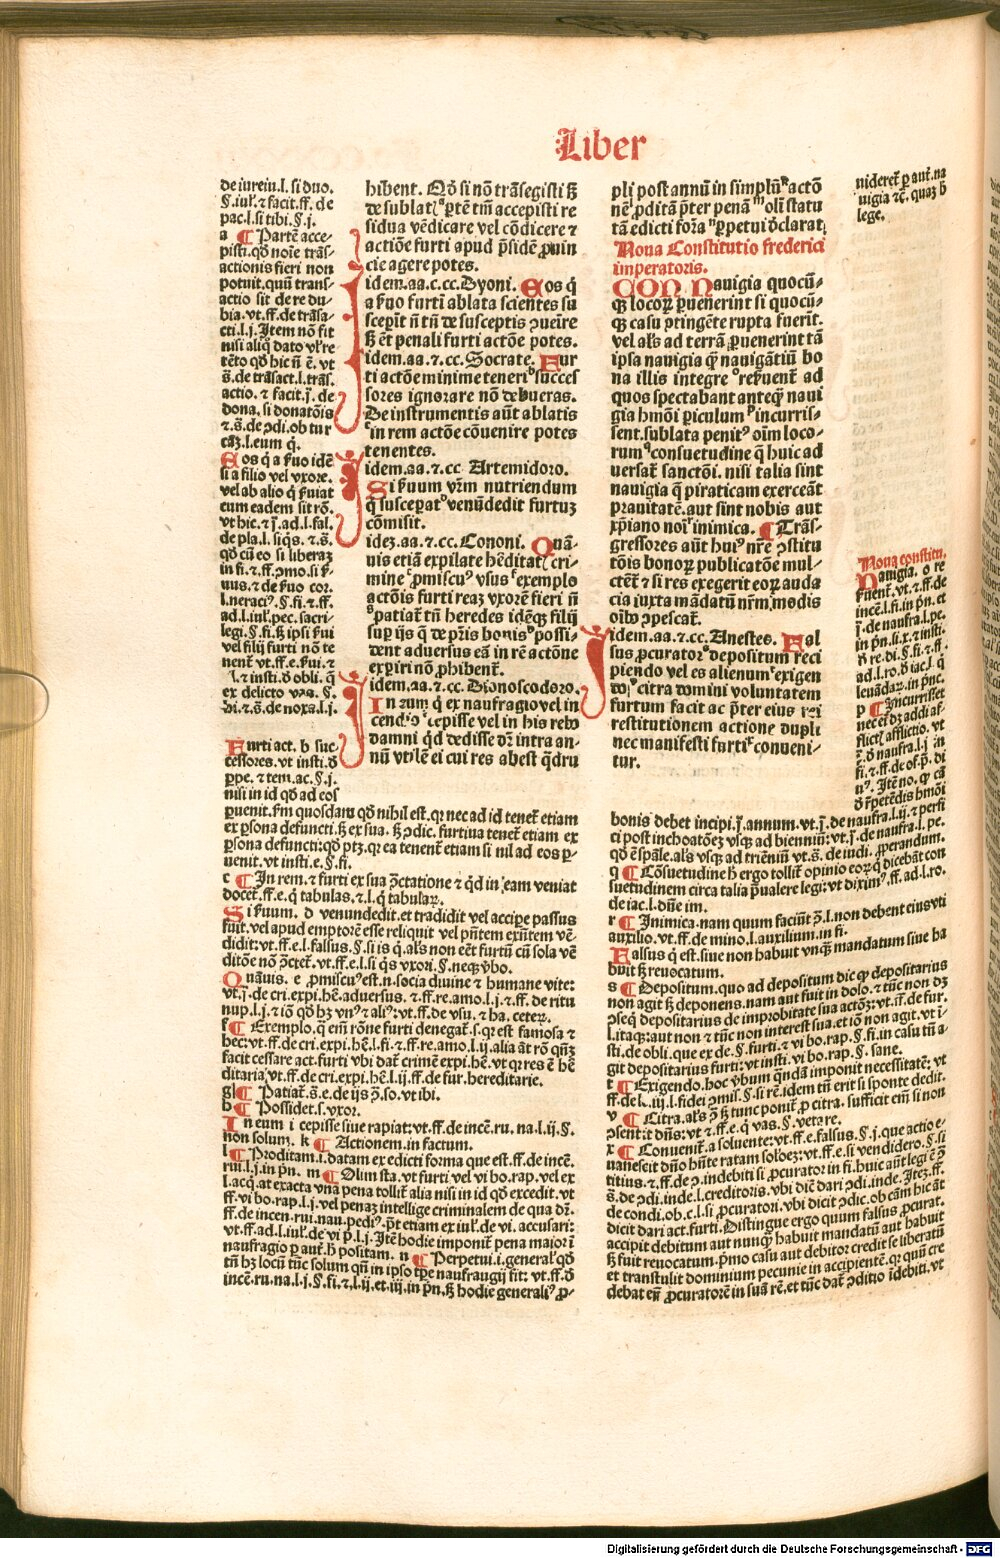 Liber
de iurein.l. si duo.
§.iul̕. ⁊ facit.ff. de
pac.l.si tibi.§.j.
a ¶ Partē acce-
pisti.qđ noīe trās-
actionis fieri non
potuit.quū trans-
actio sit de re du-
bia.vt.ff.de trāsa-
cti.l.j.Itē non fit
nisi aliq̄ dato vl̕ re
tēto qđ hic ñ ē. vt
s̄.de trāsact.l.trās.
actio.⁊ facit.j̄. de
dona. si donatōis
⁊.s̄.de ꝯdi.ob tur
cāꝫ.l.eum q̄.
Eos q̄ a ẜuo idē
si a filio vel vxore.
vel ab alio q̄ ẜuiat
eum eadem sit rō.
vt hic.⁊ j̄.ad.l.fal.
de pla.l. siq̄s.⁊.s̄.
qđ cū eo si liberaꝫ
in fi.⁊.ff.ꝓmo.si ẜ-
uus.⁊ de ẜuo cor.
l.neraci⁹.§.fi.⁊.ff.
ad.l.iul̕.pec.sacri-
legi.§.fi.ꝫ ipsi ẜui
vel filij furti nō te
nent̄ vt.ff.e.ẜui.⁊
l.⁊ insti.đ obli. q̄
ex delicto vas. §.
ẟi.⁊.s̄.de noxa.l.j.
Furti act. b suc-
cessores.vt insti.đ
ꝑpe.⁊ tem.ac.§.j.
nisi in id qđ ad eos
hibent. Qđ si nō trāsegisti ẜꝫ
de sublatꝭ ᵃꝑtē tm̄ accepisti re
sidua vēdicare vel cōdicere ⁊
actiōe furti apud p̄sidē ꝓuin
cie agere potes.
Idem.aa.⁊.cc.Dyoni. Eos q̄
a ẜuo furti ablata scientes su
sceperit ñ tñ de susceptis ꝯueīre
ẜꝫ ēt penali furti actōe potes.
Idem.aa.⁊.cc.Socrate. Fur
ti actōe minime teneri ᵇsucces
sores ignorare nō debueras.
De instrumentis aūt ablatis
ᶜin rem actōe cōuenire potes
tenentes.
Idem.aa.⁊.cc Artemidoro.
Si ẜuum vr̄m nutriendum
q̄ susceꝑatᵈ venūdedit furtuꝫ
cōmisit.
Ideꝫ.aa.⁊.cc.Cononi. Quā-
uis etiā expilate hēditatꝭ cri-
mine ᵉꝓmiscu⁹ vsus ᶠexemplo
actōis furti reaꝫ vxorē fieri ñ
ᵍpatiat̄ tñ heredes idēꝗꝫ filij
suꝑ ijs q̄ de pr̄is bonis ʰpossi-
dent aduersus eā in rē actōne
exꝑiri nō ꝓhibent̄.
Idem.aa.⁊.cc.Dionoscodoro.
In eum q̄ ex naufragio vel in
cendio ⁱcepisse vel in his rebꝰ
damni q̄d dedisse dr̄ intra an-
nū vtilē ei cui res abest q̄dru
pli post annū in simplūᵏactō
nē ˡꝓditā p̄ter penā ᵐolī statu
tā edicti forā ⁿꝑpetui ᵭclarat̄
Noua Constitutio frederici
imperatoris.
CON Nauigia quocū-
qꝫ locoꝝ ꝑuenerint si quocū-
qꝫ casu ꝯtingēte rupta fuerīt.
vel al̕s ad terrā ꝑuenerint tā
ipsa nauigia q̄ nauigātiū bo
na illis integre ᵒreẜuent̄ ad
quos spectabant anteq̄ naui
gia hm̄oi ꝑiculum ᵖincurris-
sent.sublata penit⁹ oīm loco-
rum ᑫconsuetudine q̄ huic ad
uersat̄ sanctōi. nisi talia sint
nauigia q̄ piraticam exerceāt
prauitatē.aut sint nobis aut
xp̄iano noīʳ inimica. ¶ Trās-
gressores aūt hui⁹ nr̄e ꝯstitu
tōis bonoꝝ publicatōe mul-
ctent̄ ⁊ si res exegerit eoꝝ auda
cia iuxta mādatū nr̄m.modis
oībꝰ ꝯpescat̄.
Idem.aa.⁊.cc.Anestes. Fal
sus ꝓcurator ˢdepositum reci
piendo vel es alienum ᵗexigen
do ᵛcitra domini voluntatem
furtum facit ac p̄ter eius rei
restitutionem actione dupli
nec manifesti furti ˣconueni-
tur.
nideret̄ ꝑ aut̄.na
uigia ⁊c̄. quaꝫ h̄
lege.
Noua constitu.
Nauigia. o re
ẜuent̄.vt.⁊.ff.de
incē.l.fi.in p̄n.et
j̄.de naufra.l.pe.
in p̄n.li.x.⁊ insti.
đ re.di.§.fi.⁊.ff.
ad.l.ro.đ iac.l. q̄
leuādaꝝ.in p̄nc.
p ¶ Incurrisset
nec ei dꝫ addi af-
flictꝭ afflictio. vt
j̄.đ naufra.l.j̄ in
fi.⁊.ff.de of.p̄.di
n⁹. Itē no.ꝙ cā
đ ẜꝑetēdis hm̄oi
ꝑuenit.ẜm quosdam qđ nihil est.qꝛ nec ad id tenet̄ etiam
ex ꝑsona defuncti.ẜꝫ ex sua. ẜꝫ ꝯdic. furtiua tenet̄ etiam ex
ꝑsona defuncti:qđ ptꝫ.qꝛ ea tenent̄ etiam si nil ad eos ꝑ-
uenit.vt insti.e.§.fi.
c ¶ In rem.⁊ furti ex sua ꝯtrectatione ⁊ q̄d in eam veniat
docet.ff.e.q̄ tabulas.⁊.l.q̄ tabulaꝝ.
Si ẜuum. d venundedit.et tradidit vel accipe passus
fuit.vel apud emptorē esse reliquit vel pn̄tem exn̄tem vē-
didit:vt.ff.e.l.falsus.§.si is q̄.al̕s non eēt furtū cū sola vē
ditōe nō ꝯtrectet̄.vt.ff.e.l.si q̄s vxori.§.neqꝫ v̄bo.
Quāuis. e ꝓmiscu⁹est.n.socia diuine ⁊ humane vite:
vt.j̄.de cri.expi.hē.aduersus. ⁊.ff.re.amo.l.j.⁊.ff. de ritu
nup.l.j.⁊ iō qđ hꝫ vn⁹ ⁊ ali⁹: vt.ff.de vsu. ⁊ ha. ceteꝝ.
f ¶ Exemplo.q̄ em̄ rōne furti denegat̄.s.qꝛ est famosa ⁊
hec:vt.ff.de cri.expi.hē.l.fi.⁊.ff.re.amo.l.ij.alia āt rō qn̄ꝫ
facit cessare act.furti vbi dat̄ crimē expi.hē.vt qꝛ res ē hē
ditaria.vt.ff.de cri.expi.hē.l.ij.ff.de fur.hereditarie.
g ¶ Patiat̄.s̄.e.de ijs ꝙ.so.vt ibi.
h ¶ Possidet.s.vxor.
In eum i cepisse siue rapiat:vt.ff.de incē.ru.na.l.ij.§.
non solum. k ¶ Actionem.in factum.
l ¶ Proditam.i.datam ex edicti forma que est.ff.de incē.
rui.l.j.in p̄n. m ¶ Olim sta.vt furti vel vi bo.rap.vel ex
l.acq̄.at exacta vna pena tollit̄ alia nisi in id qđ excedit.vt
ff.vi bo.rap.l.j.vel penaꝫ intellige criminalem de qua dr̄.
ff.de incen.rui.nau.pedi⁹.p̄t etiam ex iul̕.de vi. accusari:
vt.ff.ad.l.iul̕.de vi p̄.l.j.Itē hodie imponit̄ pena maior ī
naufragio ꝑ aut̄.h̄ positam. n ¶ Perpetui.i.general̕ qđ
tñ hꝫ locū tūc solum qn̄ in ipso tp̄e naufraugij fit: vt.ff.đ
incē.ru.na.l.j.§.fi.⁊.l.ij.et.iij.in p̄n.ẜꝫ hodie generali⁹ ꝓ-
bonis debet incipi.j̄.annum.vt.j̄.de naufra.l.ij.⁊ perfi
ci post inchoatōeꝫ vsqꝫ ad bienniū:vt.j̄.de naufra.l. pe.
qđ ē spāle.al̕s vsqꝫ ad triēniū vt.s̄.de iudi. ꝓperandum.
q ¶ Cōsuetudine h̄ ergo tollit̄ opinio eoꝝ q̄ dicebāt con
suetudinem circa talia p̄ualere legi:vt dixim⁹.ff.ad.l.ro.
de iac.l.dn̄e im.
r ¶ Inimica.nam quum faciūt ꝯ̄.l.non debent eius vti
auxilio.vt.ff.de mino.l.auxilium.in fi.
Falsus q̄ est.siue non habuit vnq̄ꝫ mandatum siue ha
buit ẜꝫ reuocatum.
s ¶ Depositum.quo ad depositum dic ꝙ depositarius
non agit ẜꝫ deponens.nam aut fuit in dolo.⁊ tūc non dꝫ
ꝯseq̄ depositarius de improbitate sua actōꝫ:vt.ff.de fur.
l.itaqꝫ:aut non ⁊ tūc non interest sua.et iō non agit.vt i-
sti.de obli.que ex de.§.furti.⁊ vi bo.rap.§.fi.in casu tn̄ a-
git depositarius furti:vt insti.vi bo.rap.§. sane.
t ¶ Exigendo.hoc v̄bum quādā imponit necessitatē: vt
ff.de.h̄.iij.l.fidei ꝯmis.§.si rē.idem tn̄ erit si sponte dedit.
v ¶ Citra.al̕s ꝯ̄ ẜꝫ tunc ponit̄ ꝓ citra. sufficit em̄ si non
ꝯsentit dn̄s:vt ⁊.ff.e.q̄ vas.§.vetare.
x ¶ Conuenit̄.a soluente:vt.ff.e.falsus.§.j.que actio e-
uanescit dn̄o hn̄te ratam solōeꝫ:vt.ff.e.si vendidero.§.si
titius.⁊.ff.de ꝯ.indebiti si ꝓcurator in fi.huic aut̄ legi ē ꝯ̄
s̄.de ꝯdi.inde.l.creditoris.vbi dīc dari ꝯdi.inde.Iteꝫ.ff.
de condi.ob.c.l.si ꝓcuratori.vbi dicit ꝯdic.ob cām hīc āt
dicit dari act.furti.Distingue ergo quum falsus ꝓcurat.
accipit debitum aut nunqꝫ habuit mandatū aut habuit
ẜꝫ fuit reuocatum.p̄mo casu aut debitor credit se liberatū
et transtulit dominium pecunie in accipientē.qꝛ quū cre
debat eū ꝓcuratorē in suā rē.et tūc dat̄ ꝯditio īdebiti.vt
Digitalisierung gefördert durch die Deutsche Forschungsgemeinschaft - DFG